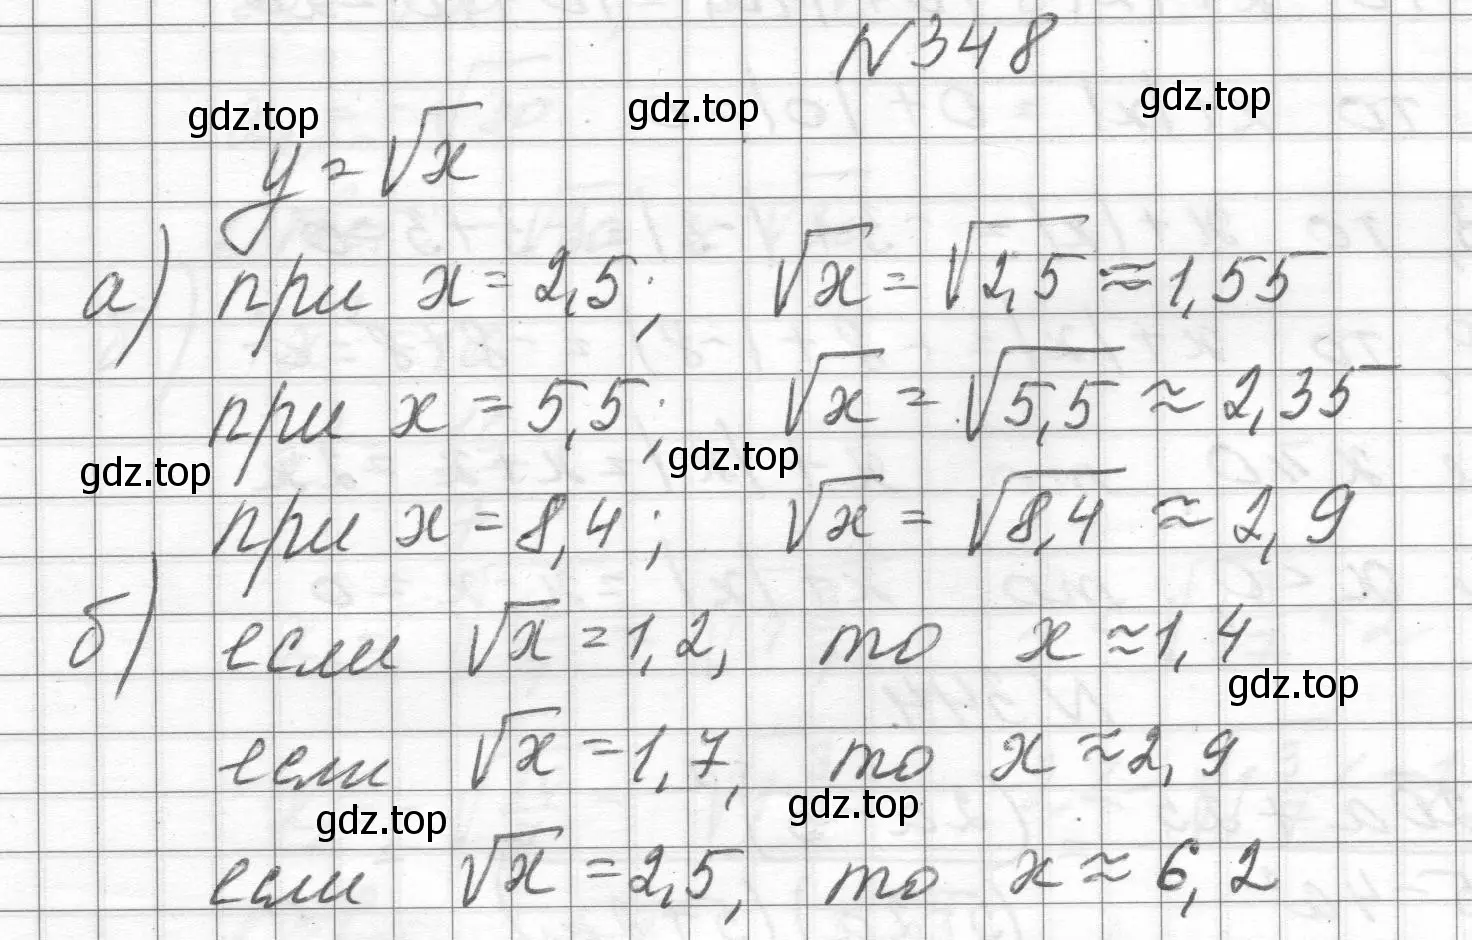 N348
gdz.top gdz.top gdz.top
y = √x
а) при x = 2,5; √x = √2,5 ≈ 1,55
при x = 5,5; √x = √5,5 ≈ 2,35
gdz.top gdz.top
при x = 8,4; √x = √8,4 ≈ 2,9
б) если √x = 1,2, то x ≈ 1,4
gdz.top
если √x = 1,7, то x ≈ 2,9
gdz.top gdz.top
если √x = 2,5, то x ≈ 6,2